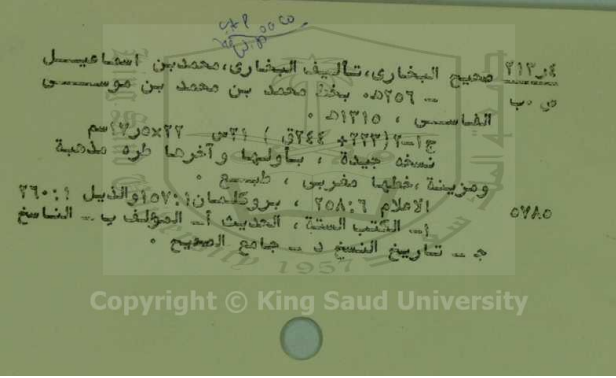 ٢١٣٫٤ صحيح البخارى، تأليف البخارى، محمد بن اسماعيل
ص٠ب ـ ٢٥٦هـ٠ بخط محمد بن محمد بن موسى
الفاسى ، ١٣١٥هـ ٠
ج١ـ٢(٢٣٣+ ٢٤٤ق ) ٢١س ٢٢×١٧٫٥سم
نسخة جيدة ، بأولها وآخرها طرة مذهبة
ومزينة ،خطها مغربى ، طبع ٠
٥٧٨٥ الاعلام ٢٥٨:٦ ، بروكلمان١٥٧:١والذيل ٢٦٠:١
١ـ الكتب الستة ، الحديث أـ المؤلف ب ـ الناسخ
جـ ـ تاريخ النسخ د ـ جامع الصحيح ٠
1957
Copyright © King Saud University